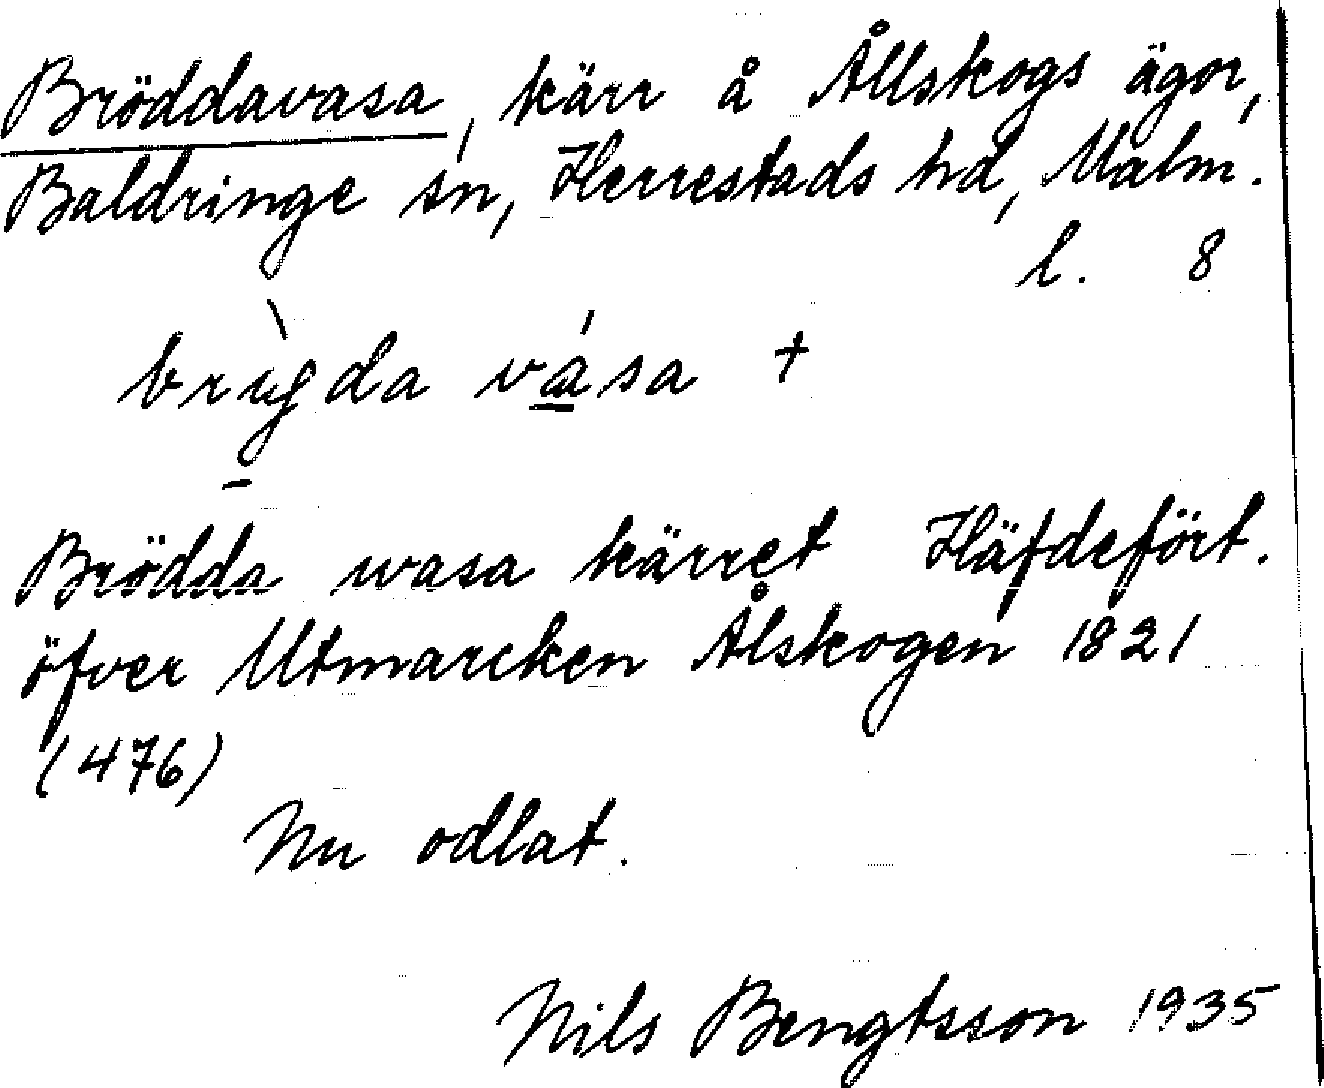 Bröddavasa, kärr å Ållskogs ägor,
Baldringe sn, Herrestads hd, Malm.
l. 8
vása †
Brödda wasa kärret Häfdefört.
öfver Utmarcken Ålskogen 1821
(476)
Nu odlat.
Nils Bengtsson 1935